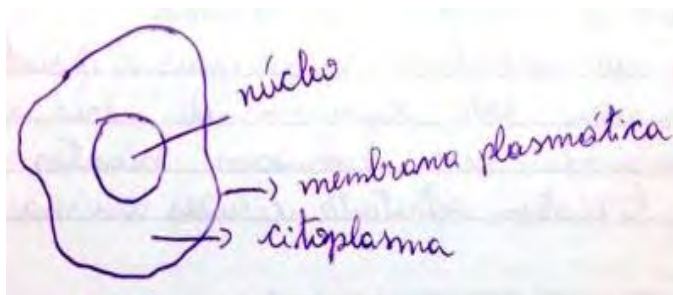 núcleo
membrana plasmática
citoplasma